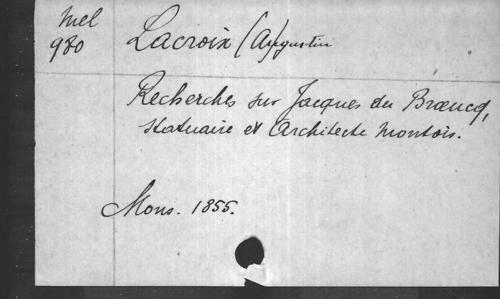 Mel
980
Lacroix (Augustin
Recherches sur Jacques du Brœucq,
statuaire et architecte montois.
Mons. 1855.